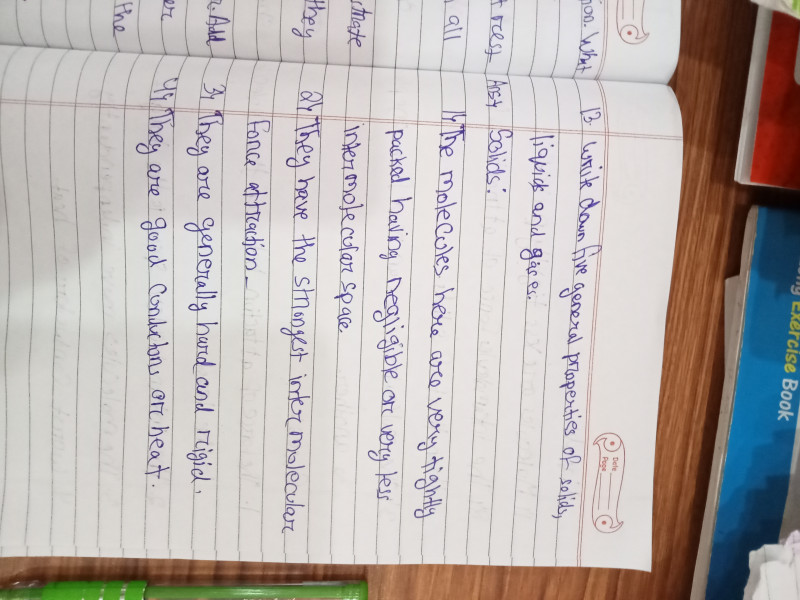 13. write down five general properties of solids,
liquids and gases.
Ans> Solids:
1> The molecules here are very tightly
packed having negligible or very less
intermolecular space
2> They have the strongest intermolecular
Force attraction.
3> They are generally hard and rigid.
4> They are good conductors or heat.
Date
Page
Exercise Book
What
all
they
Add
the